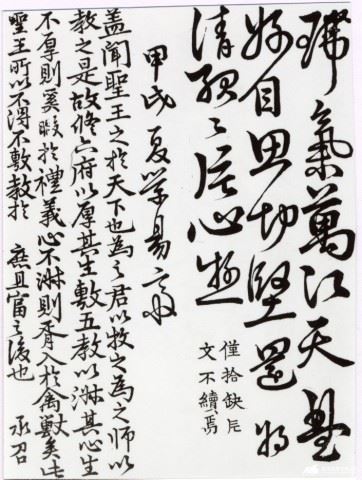 氣萬江天
自思切堅還將
清 心
僅拾缺片
文不續焉
甲戌夏學易
蓋聞聖王之於天下也為之君以牧之為之師以
教之是故修六府以厚其生敷五教以淑其心生
不厚則奚暇於禮義心不淑則胥入於禽獸矣此
聖王所以不得不敷教於 庶且富之後也 承召